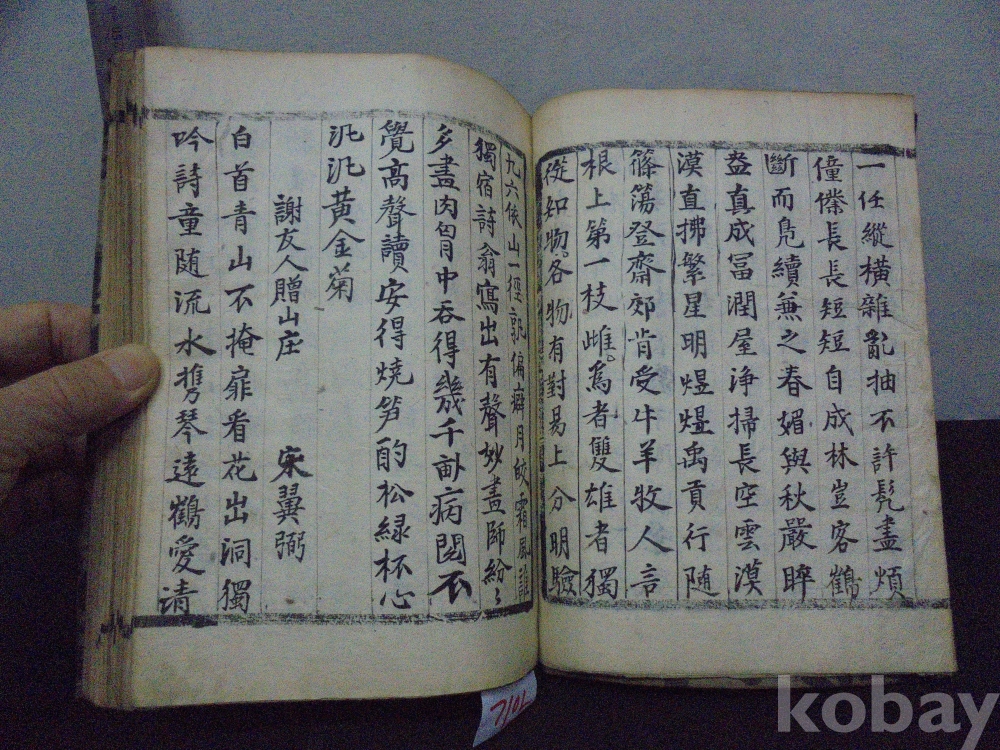 一任縱橫雜亂抽不許髡盡煩
僮傔長長短短自成林豈客鶴
斷而鳧續兼之春媚與秋嚴睟
盎真成冨潤屋浄掃長空雲漠
漠直拂繁星明煜煜禹貢行随
篠蕩登齋郊肯受牛羊牧人言
根上第一枝雌焉者雙雄者獨
從如物各物有對易上分明驗
九六依山一徑孰偏癖月皎霜風誰
獨宿詩翁寫出有聲妙畫師紛〻
多畫肉胷中吞得幾千畝病閱不
覺高聲讀安得燒笋酌松緑杯心
汎汎黄金菊
謝友人贈山庄 宋翼弼
白首青山不掩扉看花出洞獨
吟詩童随流水携琴遠鶴愛清
7101
kobay